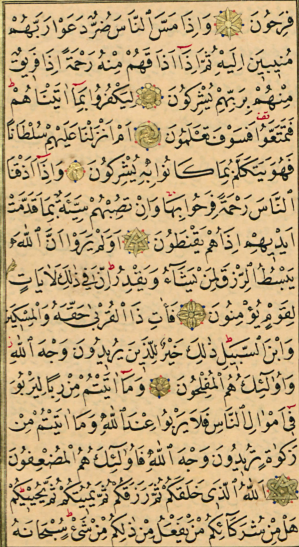 فَرِحُونَ وَاِذَا مَسَّ النَّاسَ ضُرٌّ دَعَوْا رَبَّهُمْ
مُنٖيبٖينَ اِلَيْهِ ثُمَّ اِذَٓا اَذَاقَهُمْ مِنْهُ رَحْمَةً اِذَا فَرٖيقٌ
مِنْهُمْ بِرَبِّهِمْ يُشْرِكُونَ لِيَكْفُرُوا بِمَٓا اٰتَيْنَاهُمْ
فَتَمَتَّعُوا فَسَوْفَ تَعْلَمُونَ اَمْ اَنْزَلْنَا عَلَيْهِمْ سُلْطَانًا
فَهُوَ يَتَكَلَّمُ بِمَا كَانُوا بِهٖ يُشْرِكُونَ وَاِذَٓا اَذَقْنَا
النَّاسَ رَحْمَةً فَرِحُوا بِهَا وَاِنْ تُصِبْهُمْ سَيِّئَةٌ بِمَا قَدَّمَتْ
اَيْدٖيهِمْ اِذَا هُمْ يَقْنَطُونَ اَوَلَمْ يَرَوْا اَنَّ اللّٰهَ
يَبْسُطُ الرِّزْقَ لِمَنْ يَشَٓاءُ وَيَقْدِرُ اِنَّ فٖي ذٰلِكَ لَاٰيَاتٍ
لِقَوْمٍ يُؤْمِنُونَ فَاٰتِ ذَا الْقُرْبٰى حَقَّهُ وَالْمِسْكٖينَ
وَابْنَ السَّبٖيلِ ذٰلِكَ خَيْرٌ لِلَّذٖينَ يُرٖيدُونَ وَجْهَ اللّٰهِ
وَاُولٰٓئِكَ هُمُ الْمُفْلِحُونَ وَمَٓا اٰتَيْتُمْ مِنْ رِبًا لِيَرْبُوَا
فٖٓي اَمْوَالِ النَّاسِ فَلَا يَرْبُوا عِنْدَ اللّٰهِ وَمَٓا اٰتَيْتُمْ مِنْ
زَكٰوةٍ تُرٖيدُونَ وَجْهَ اللّٰهِ فَاُولٰٓئِكَ هُمُ الْمُضْعِفُونَ
اَللّٰهُ الَّذٖي خَلَقَكُمْ ثُمَّ رَزَقَكُمْ ثُمَّ يُمٖيتُكُمْ ثُمَّ يُحْيٖيكُمْ
هَلْ مِنْ شُرَكَٓائِكُمْ مَنْ يَفْعَلُ مِنْ ذٰلِكُمْ مِنْ شَيْءٍ سُبْحَانَهُ